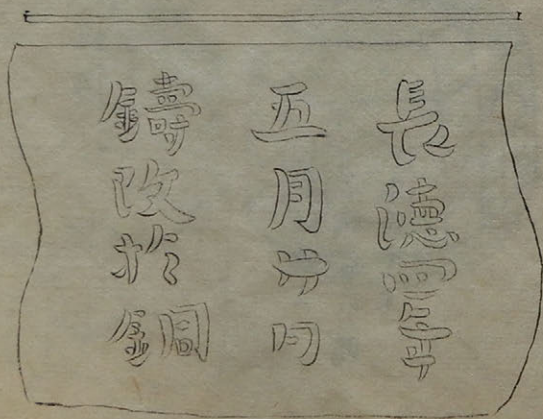 長德四年
五月廿日
鑄改於銅